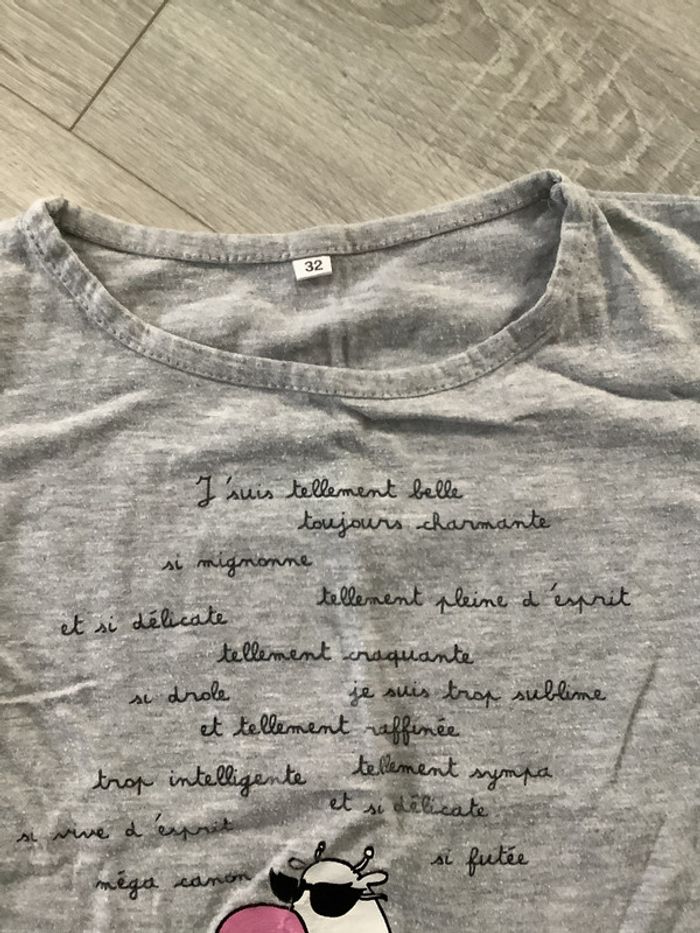 32
J'suis tellement belle
toujours charmante
si mignonne
tellement pleine d'esprit
et si délicate
tellement craquante
si drole
je suis trop sublime
et tellement raffinée
trop intelligente
tellement sympa
et si délicate
si vive d'esprit
si futée
méga canon